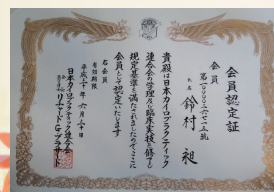 会員認定証
会員
第一〇〇〇六二七一五號
氏名 鈴村 昶
貴殿は日本カイロプラクティック
連合会の学理及び臨床実技を修了し
規定基準を満たされましたのでここに
会員として認定いたします
右会員
有効期限
平成二十年 六月三十日
日本カイロプラクティック連合会